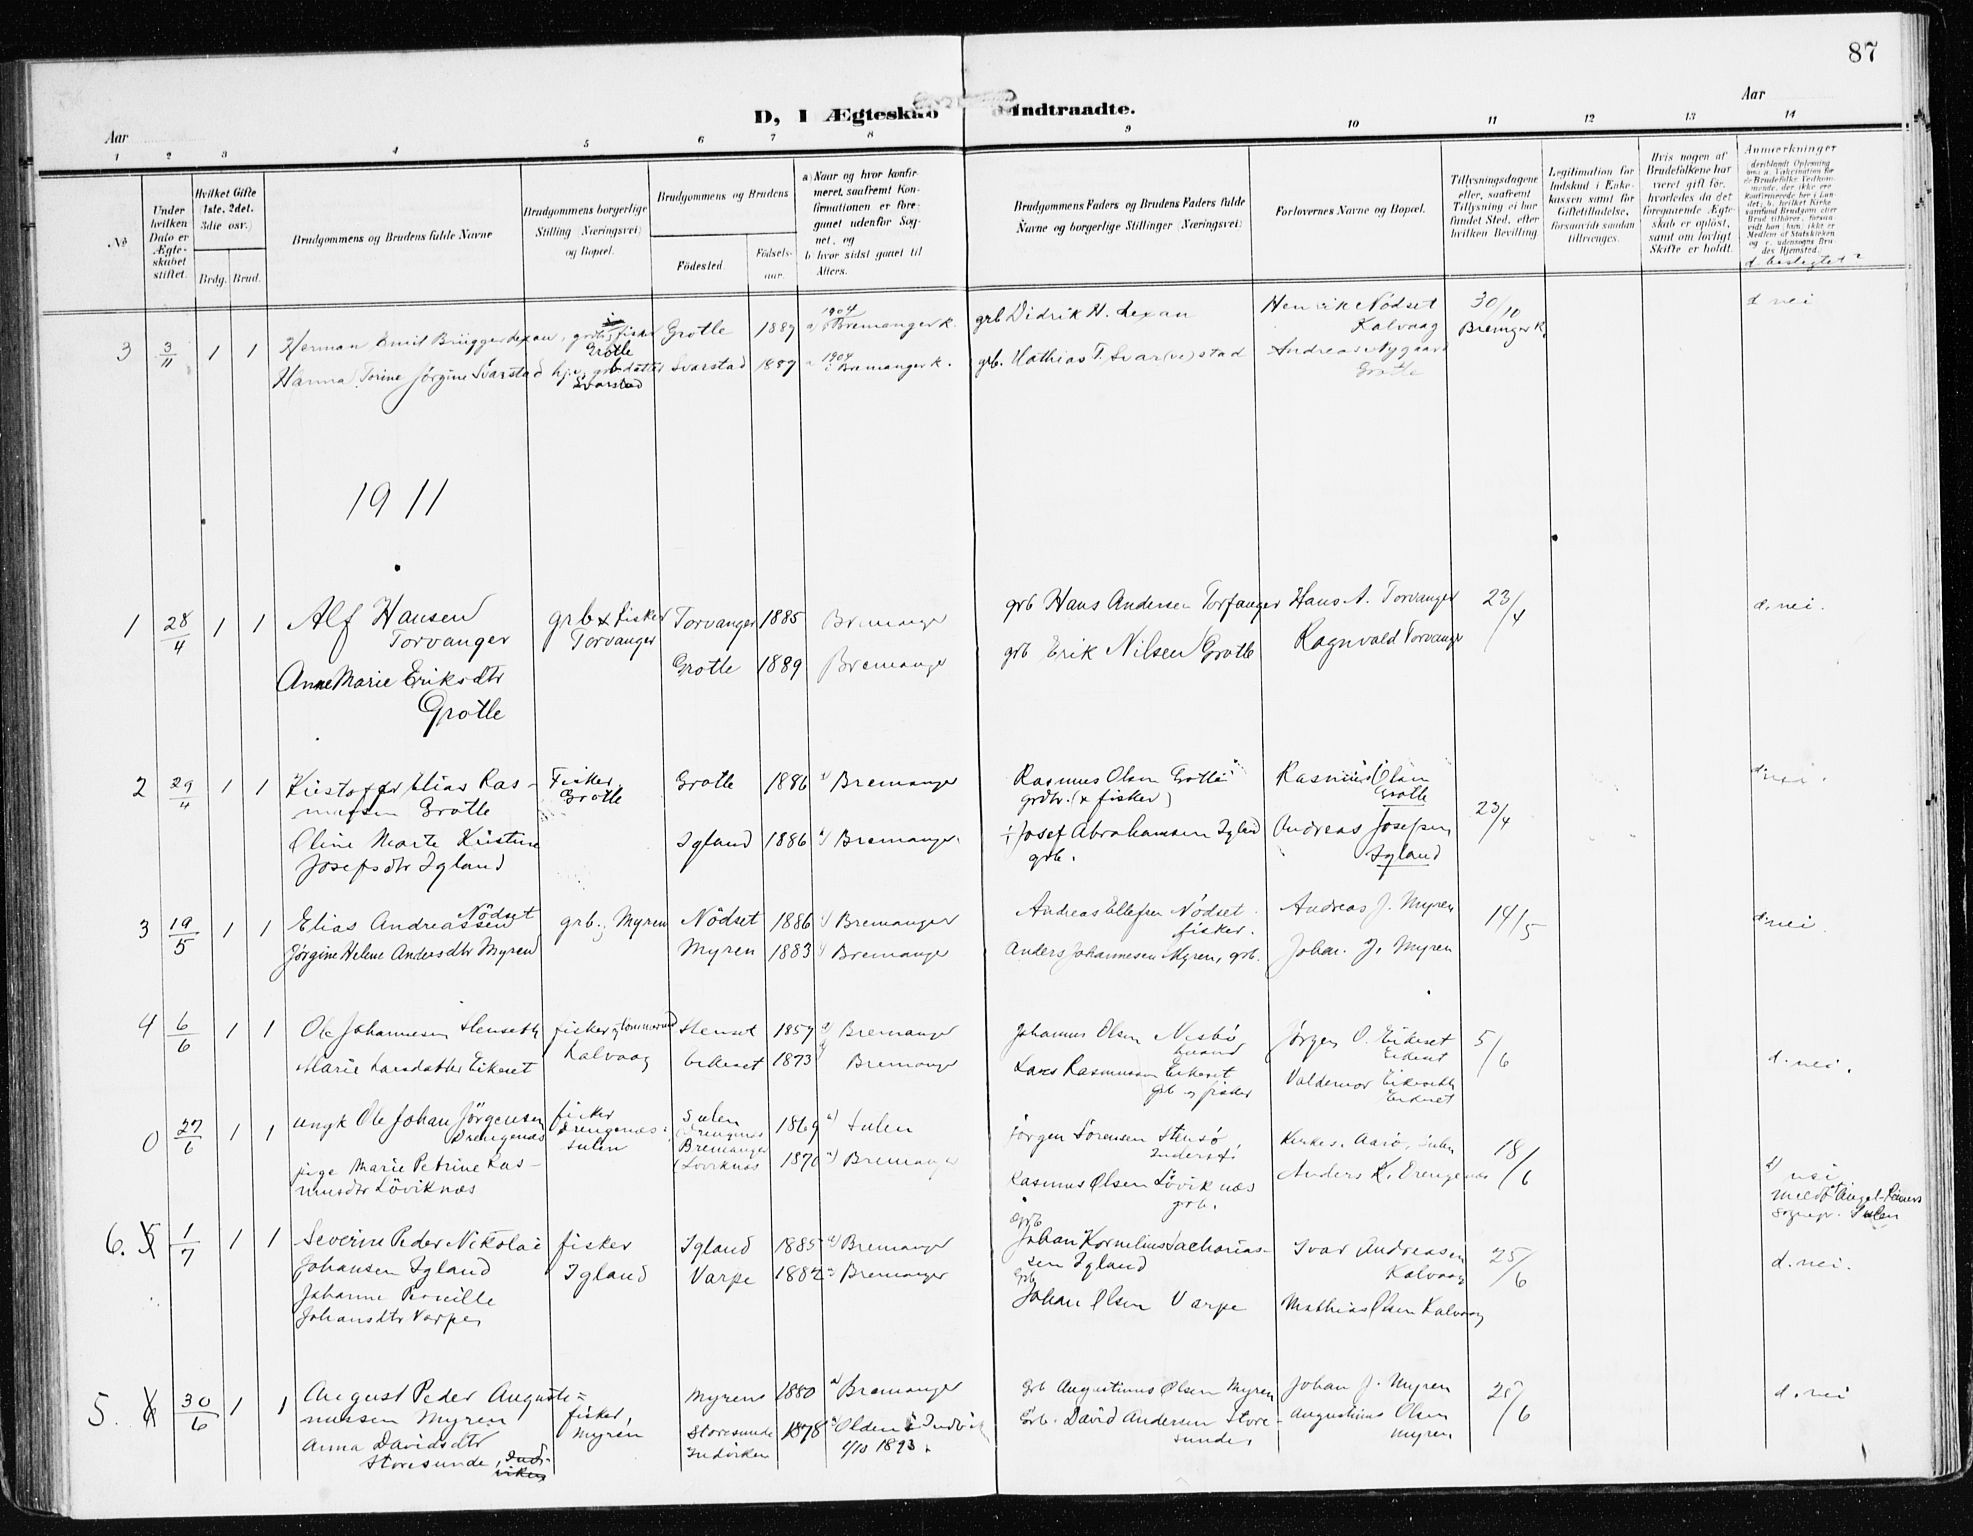 87
D, I Ægteskab Indtraadte.
Aar
Aar
1 2 3 4 5 6 7 8 9 10 11 12 13 14
No
Under hvilken Dato er Ægteskabet stiftet.
Hvilket Gifte 1ste, 2det, 3die osv.)
Brdg. Brud.
Brudgommens og Brudens fulde Navne
Brudgommens borgerlige Stilling (Næringsvei) og Bopæl.
Brudgommens og Brudens
Födested.
Födselsaar.
a) Naar og hvor konfirmeret, saafremt Konfirmationen er foregaaet udenfor Sognet, og
b) hvor sidst gaaet til Alters.
Brudgommens Faders og Brudens Faders fulde Navne og borgerlige Stillinger (Næringsvei)
Forlovernes Navne og Bopæl.
Tillysningsdagene eller, saafremt Tillysning ei har fundet Sted, efter hvilken Bevilling
Legitimation for Indskud i Enkekassen samt for Giftetilladelse, forsaavidt saadan tiltrænges.
Hvis nogen af Brudefolkene har været gift før, hvorledes da det foregaaende Ægteskab er oplöst, samt om lovligt Skifte er holdt.
Anmerkninger
d. beslegtet?
3 3/11 1 1 Herman Emil Brügger Lexau, grbr. i fisker Grotle Grotle 1889 a) 1904 Bremanger k. grb Didrik H. Lexau Henrik Nödset Kalvaag 30/10 Bremger k. d nei
Hanna Torine Jörgine Svarstad hj. v. grb datter Svarstad Svarstad 1887 1904 Bremanger k. grb. Mathias T. Svar(ve)stad Andreas Nygaard Grotle
1911
1 28/4 1 1 Alf Hansen Torvanger grb & fisker Torvanger Torvanger 1885 Bremanger grb Hans Andersen Torfanger Hans A. Torvanger 23/4 d. nei.
Anne Marie Eriksdtr Grotle Grotle 1889 Bremanger grb Erik Nilsen Grotle Ragnvald Torvanger
2 29/4 1 1 Kristoffer Elias Rasmussen Grotle Fisker, Grotle Grotle 1886 Bremanger Rasmus Olsen Grotle grbr. (& fisker) Rasmus Olsen Grotle 23/4 d. nei.
Oline Marte Kristine Josefsdtr Igland Igland 1886 Bremanger. Josef Abrahamsen Igland grb. Andreas Josefsen Igland
3 19/5 1 1 Elias Andreassen Nödset grb., Myren Nödset 1886 Bremanger Andreas Ellefsen Nödset fisker. Andreas J. Myren 14/5 d. nei.
Jörgine Helene Andersdtr Myren Myren 1883 Bremanger Anders Johannesen Myren, grb. Johan. J. Myren
4 6/6 1 1 Ole Johannesen Stenseth fisker og tömmermd Kalvaag Stenset 1857 Bremanger Johannes Olsen Nesbö Jörgen O. Eikeset Eikeset 5/6 d. nei.
Marie Larsdatter Eikeset Eikeset 1873 Bremanger Lars Rasmussen Eikeset grb og fisker Valdemar Eikeseth Eikeset
0 27/6 1 1 ungk Ole Johan Jörgensen Drengenæs fisker Drengenæs Sulen Sulen Drengenæs 1869 a) Sulen Jörgen Sörensen Stensö, Kirkes. Aarö, Sulen 18/6
pige Marie Petrine Rasmusdtr Löviknæs Bremanger (Löviknæs 1870 a) Bremanger Rasmus Olsen Lövik næs grb. Anders K. Drengenæs d) nei meldt Sognepr. Sulen
6. 5 1/7 1 1 Severin Peder Nikolai Johansen Igland fisker Igland Igland 1885 a) Bremanger Grb Johan Kornelius Sachariassen Igland Ivar Andreasen Kalvaag 25/6 d. nei.
Johanne Pernille Johansdtr Varpe Varpe 1882 Bremanger Grb Johan Olsen Varpe Mathias Olsen Kalvaag
5. 6 30/6 1 1 August Peder Augustinussen Myren fisker, Myren Myren 1880 a) Bremanger Grb Augustinus Olsen Myren Johan J. Myren 25/6 d. nei
Anna Davidsdtr Storesunde, Indviken Storesunde Indviken 1878 Olden i Indvik 1/10 1893. Grb. David Andersen Storesunde, Augustinus Olsen Myren.